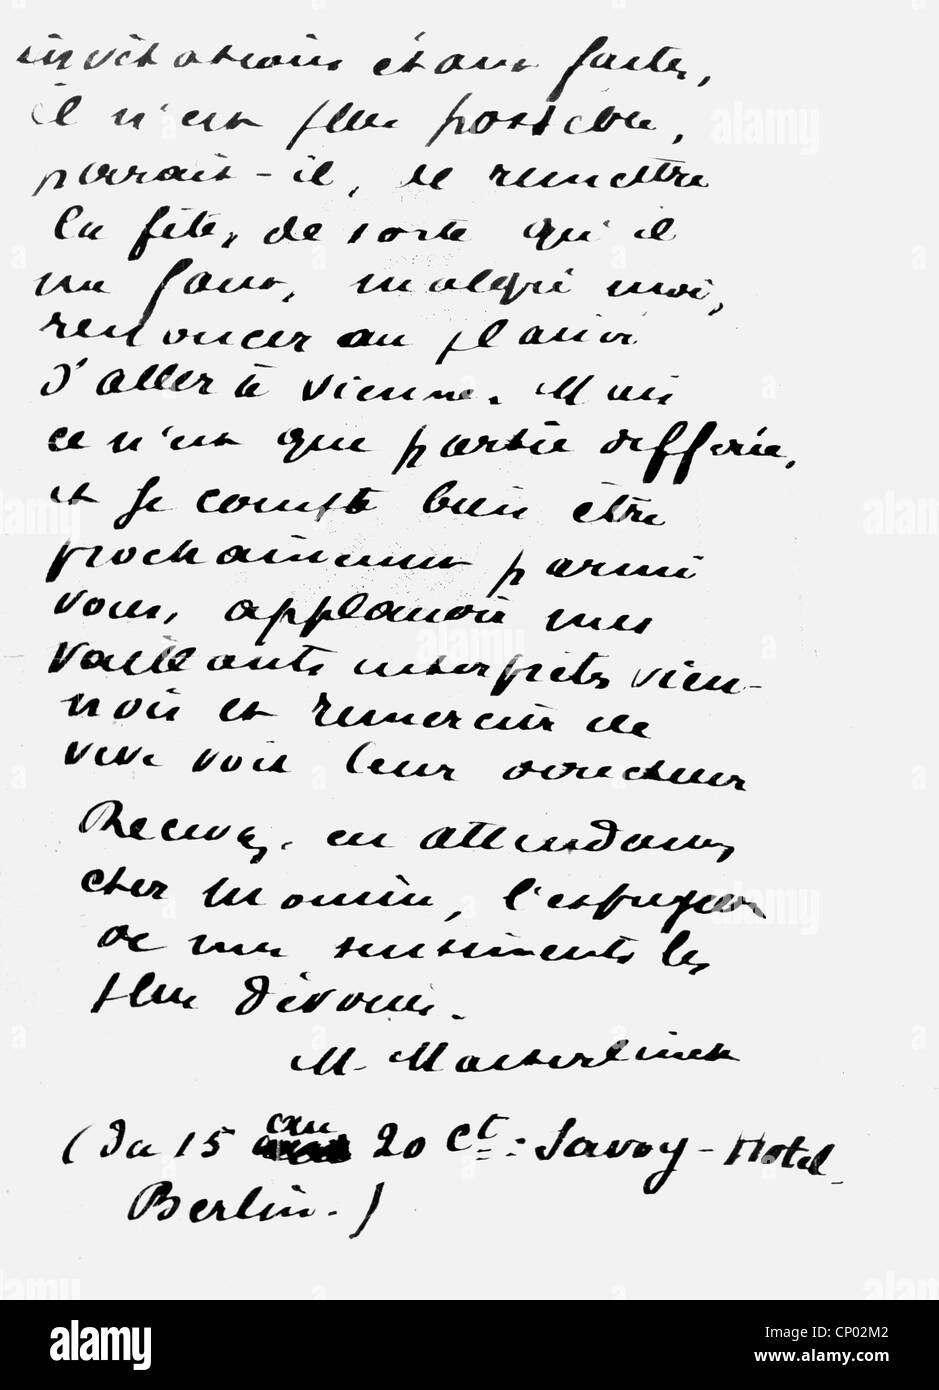 invitations étant faites,
il n'est plus possible,
paraît-il, de remettre
la fête, de sorte qu'il
me faut, malgré moi,
renoncer au plaisir
d'aller à Vienne. Mais
ce n'est que partie différée,
et je compte bien être
prochainement parmi
vous, applaudir mes
vaillants interprètes vien-
nois et remercier de
vive voix leur directeur
Recevez, en attendant,
cher Monsieur, l'expression
de mes sentiments les
plus dévoués.
M. Maeterlinck
(du 15 au 20 Ct: Savoy-Hotel
Berlin.)
alamy
Image ID: CP02M2
www.alamy.com